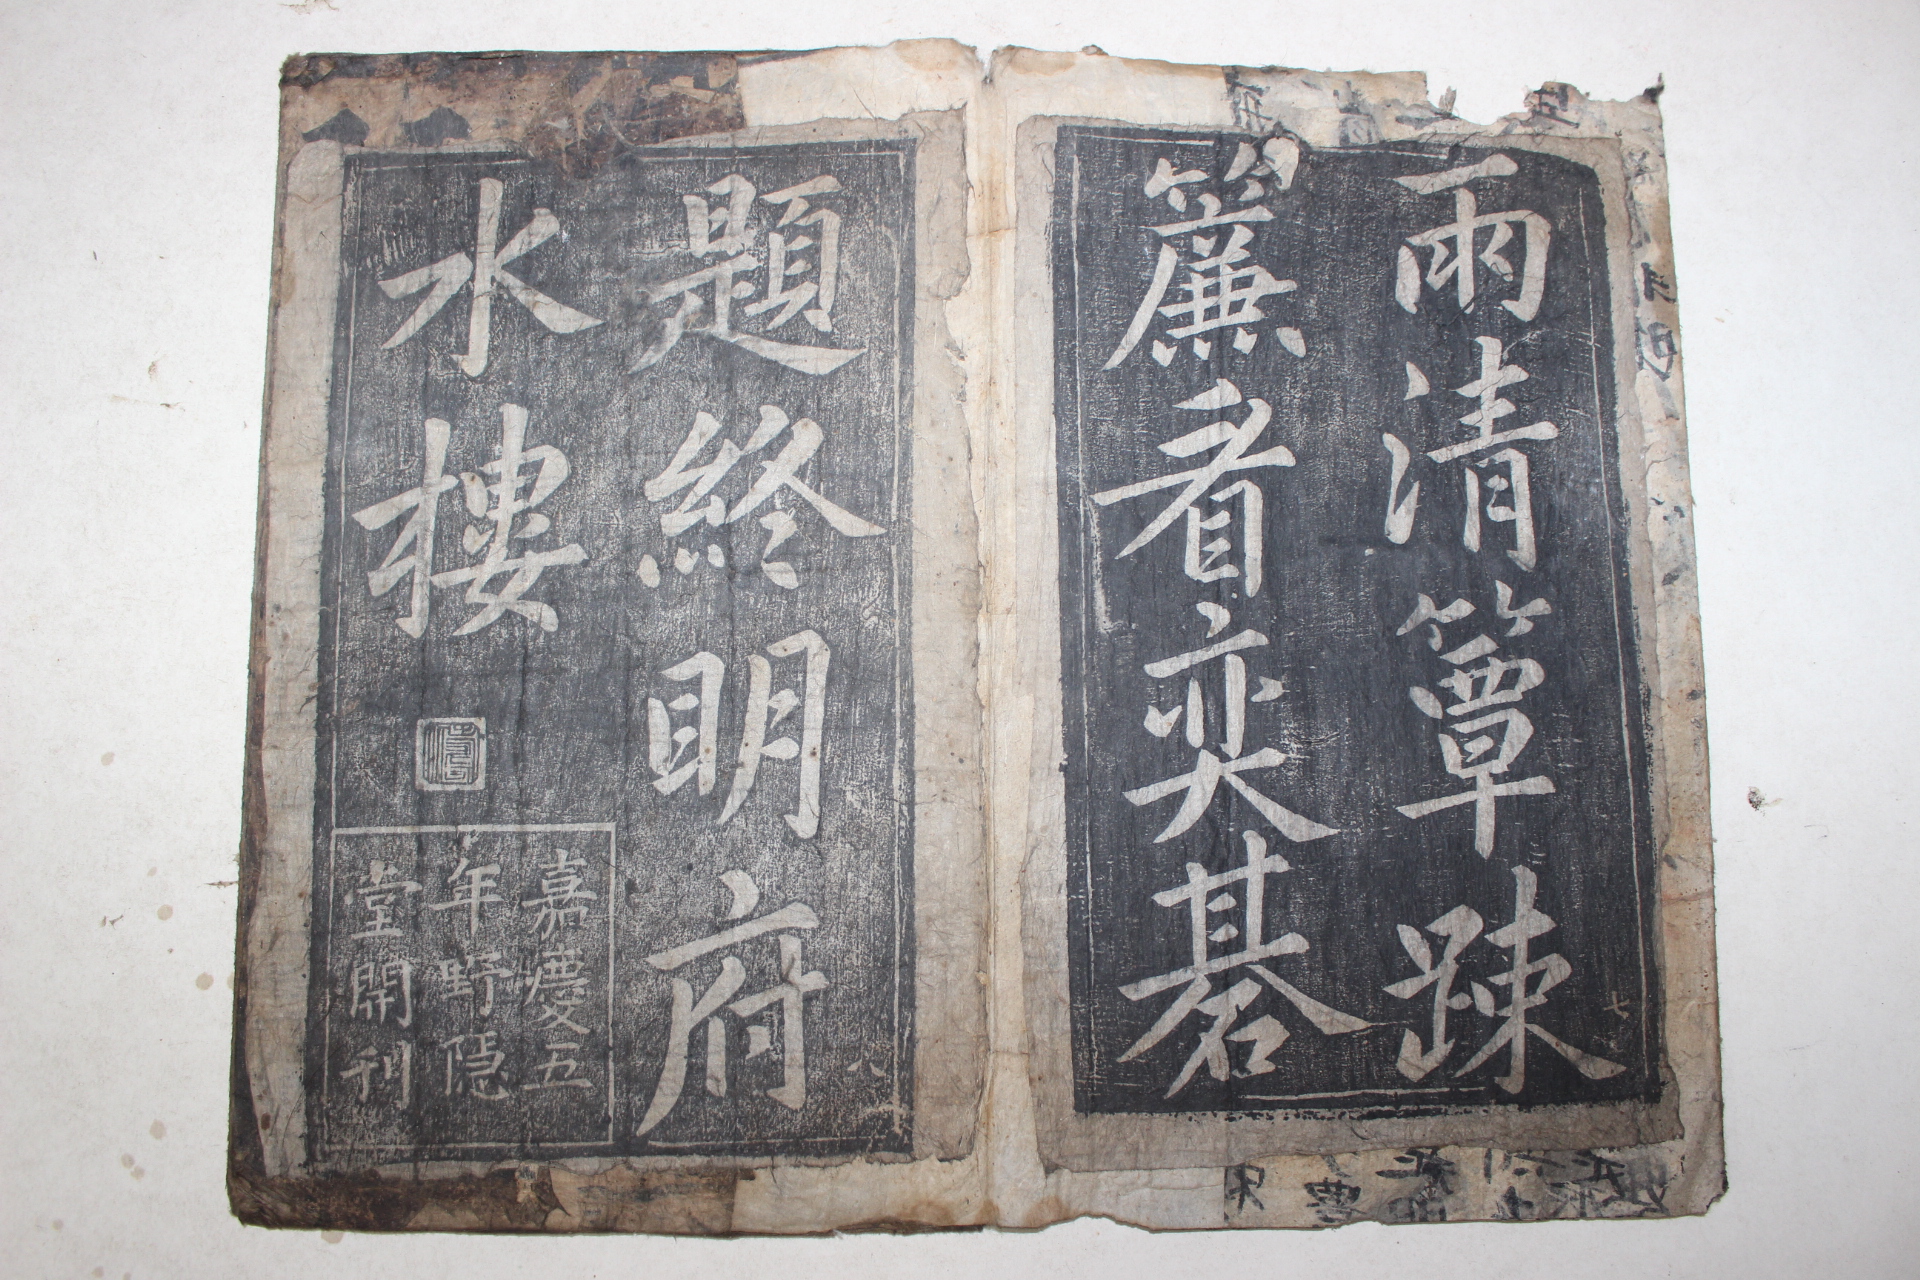 雨清簟疎
簾看奕碁
七
題終明府
水樓
嘉慶五
年野隱
堂開刊
八